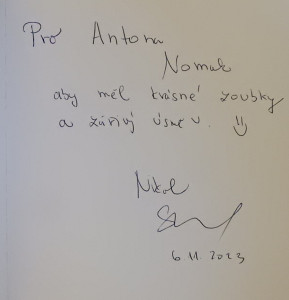 Pro Antona
aby měl krásné zoubky
a zářivý úsměv.
Nikol
6.11.2023